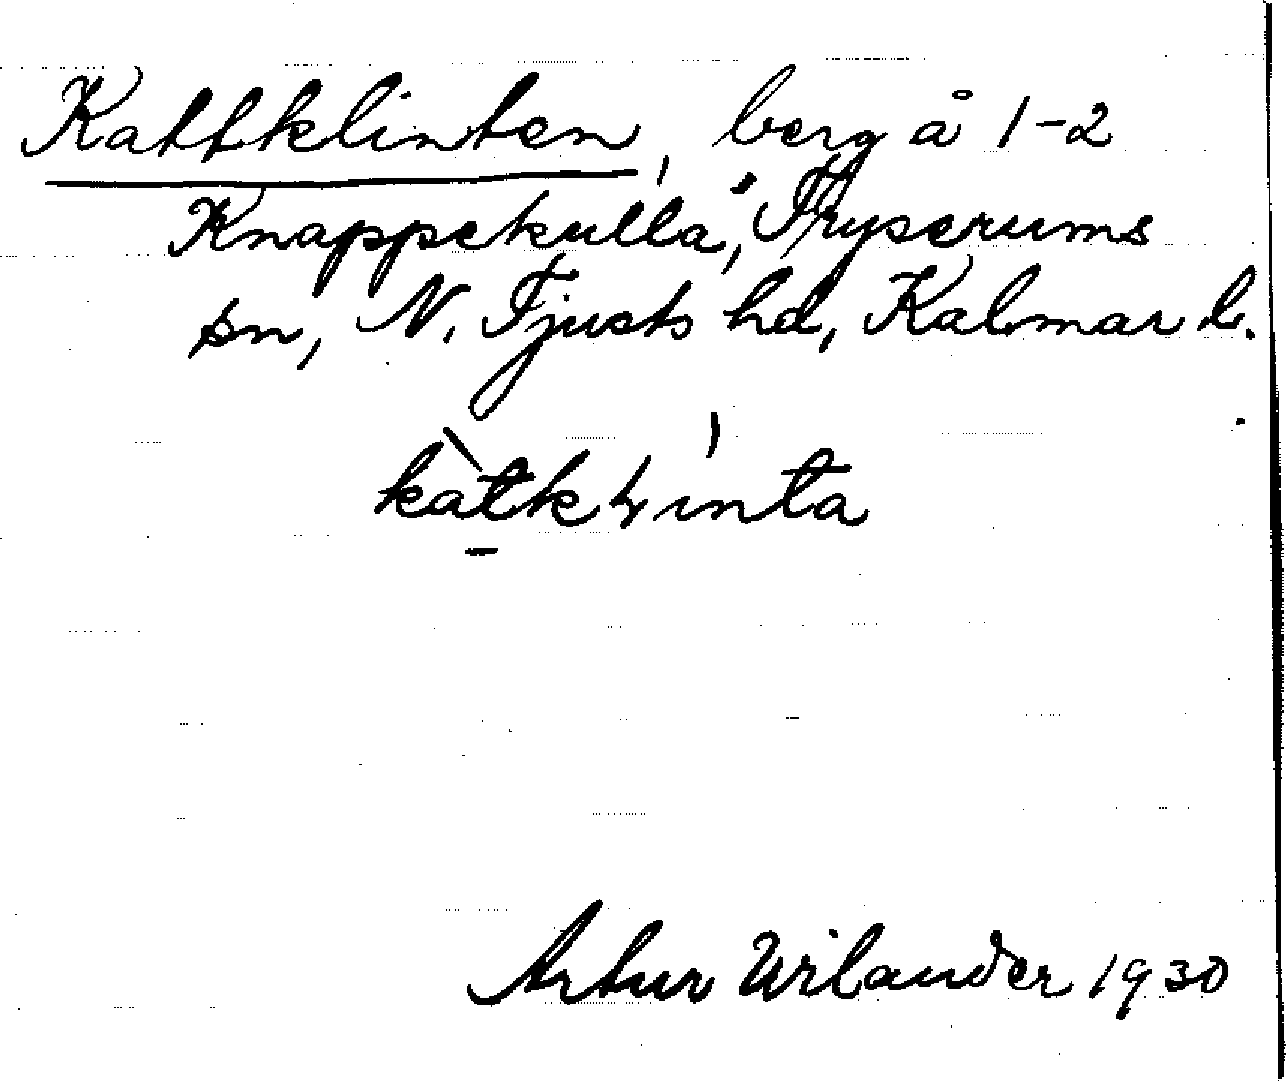 Kattklinten, berg å 1-2
Knappekulla, Tryserums
sn, N. Tjusts hd, Kalmar l.
kàtkɽınta
Artur Wilander 1930